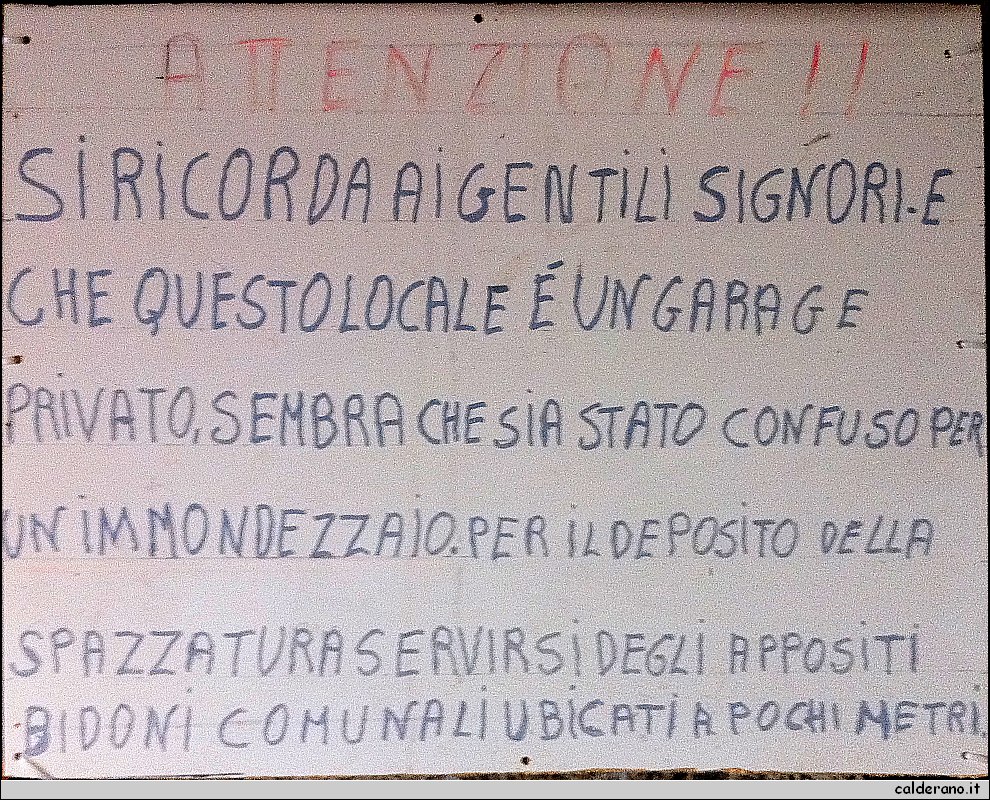 ATTENZIONE!!
SI RICORDA AI GENTILI SIGNORI-E
CHE QUESTO LOCALE É UN GARAGE
PRIVATO, SEMBRA CHE SIA STATO CONFUSO PER
UN IMMONDEZZAIO. PER IL DEPOSITO DELLA
SPAZZATURA SERVIRSI DEGLI APPOSITI
BIDONI COMUNALI UBICATI A POCHI METRI.
calderano.it